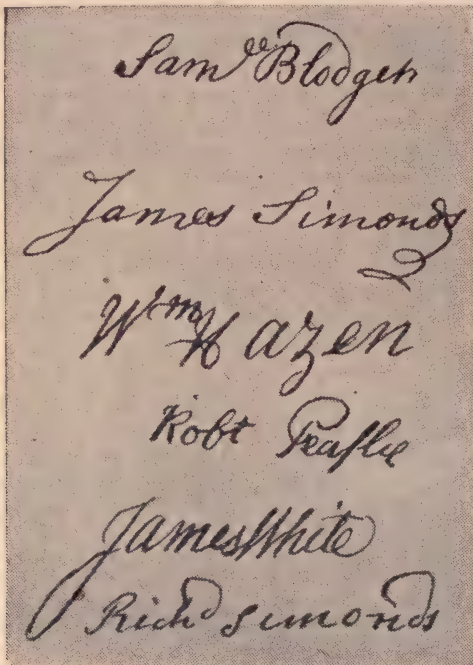 Sam^ll Blodget
James Simonds
W^m Hazen
Rob^t Peaslie
James White
Rich^d Simonds